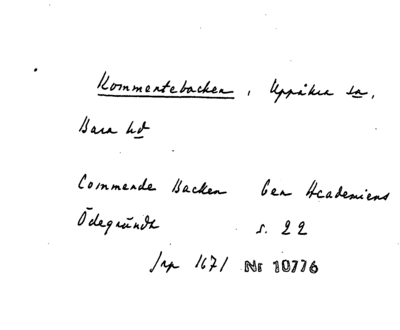 Kommentebacken, Uppåkra sn,
Bara hd
Commende Backen Cen Academiens
Ödegrundh s. 22
Jrp 1671 Nr 10776